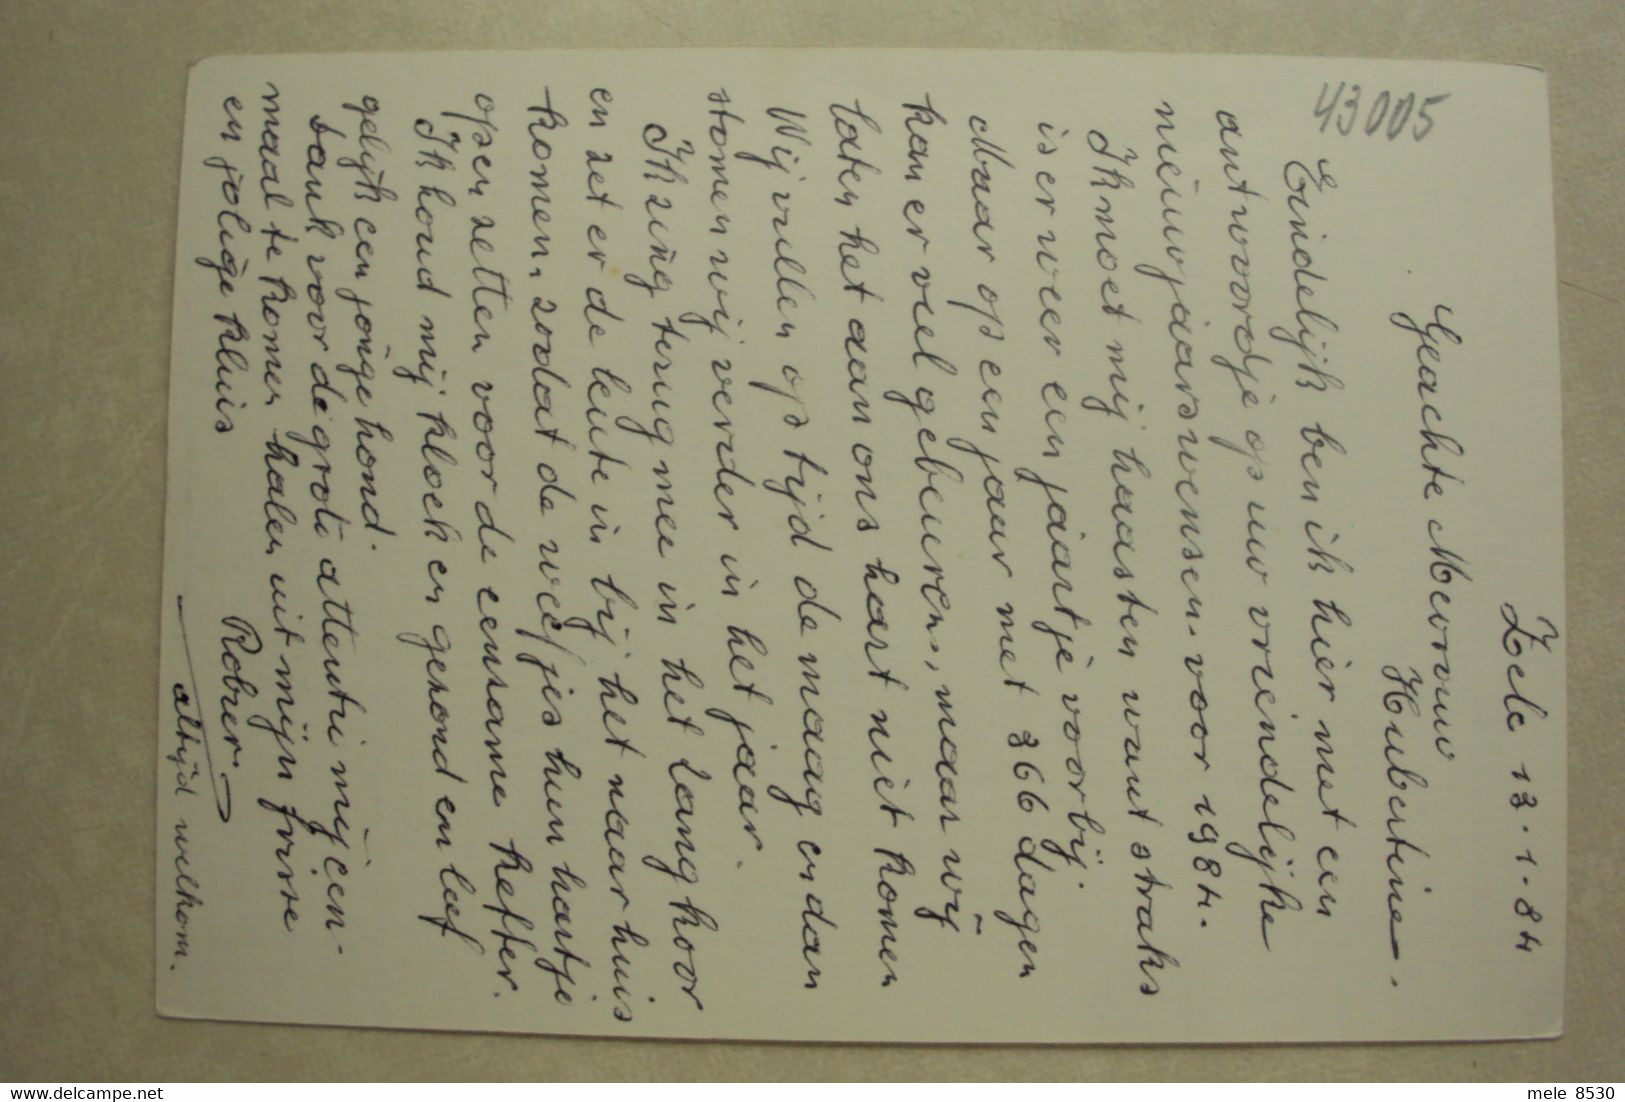 43005
Zele 13.1.84
Geachte Mevrouw
Hubertine.
Eindelijk ben ik hier met een
antwoordje op uw vriendelijke
nieuwjaarswensen voor 1984.
Ik moet mij haasten want straks
is er weer een jaartje voorbij.
Maar op een jaar met 366 dagen
kan er veel gebeuren, maar wij
laten het aan ons hart niet komen
Wij vullen op tijd de maag en dan
stomen wij verder in het jaar.
Ik zing terug mee in het zangkoor
en zet er de leute in bij het naar huis
komen, zodat de weefjes hun hartje
open zetten voor de eensame heffer.
Ik houd mij kloek en gezond en laef
gelijk een jonge hond.
Dank voor de grote attentie mij een-
maal te komen halen uit mijn frisse
en jolige kluis
Robrer
altijd welkom.
mele 8530